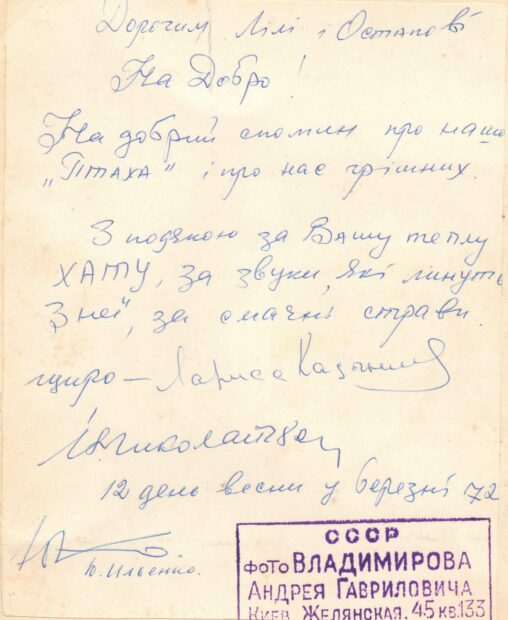 Дорогим Лілі і Остапові
На Добро!
На добрий спомин про нашо
„Птаха" і про нас грішних.
З подякою за Вашу теплу
ХАТУ, за звуки, які линуть
З неї, за смачні страви.
щиро – Лариса Кадочнікова
І. Миколайчук
12 день весни у березні 72
Ю. Ильенко.
СССР
ФОТО ВЛАДИМИРОВА
АНДРЕЯ ГАВРИЛОВИЧА
КИЕВ, ЖЕЛЯНСКАЯ, 45 КВ.133